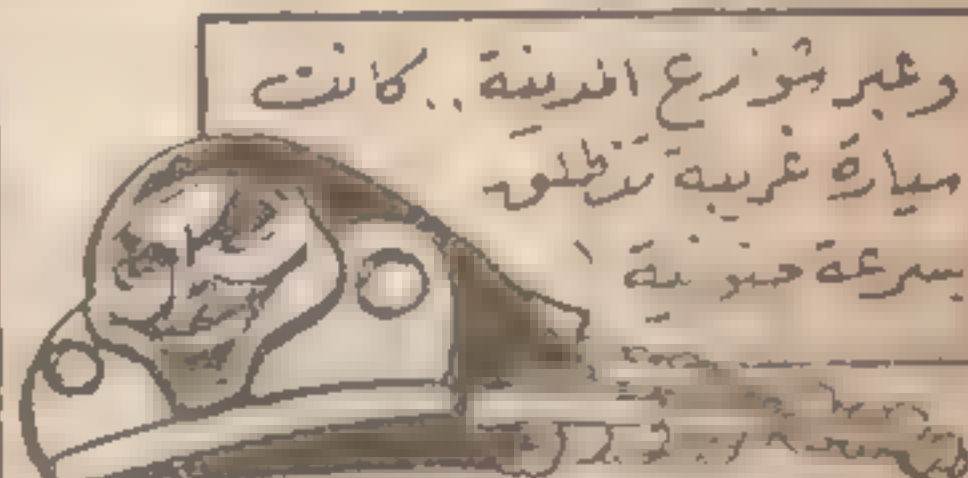 وعبر شوارع المدينة .. كانت
سيارة غريبة تنطلق
بسرعة جنونية